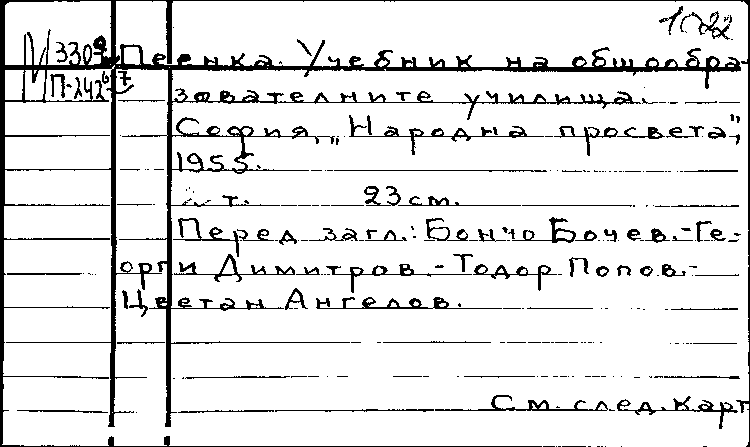 1022
М 3309 Пеенка. Учебник на общообра-
П-242 зователните училища.
София, „Народна просвета",
1955.
т. 23 см.
Перед загл.: Бончо Бочев.-Ге-
орги Димитров.-Тодор Попов.-
Цветан Ангелов.
См. след. карт